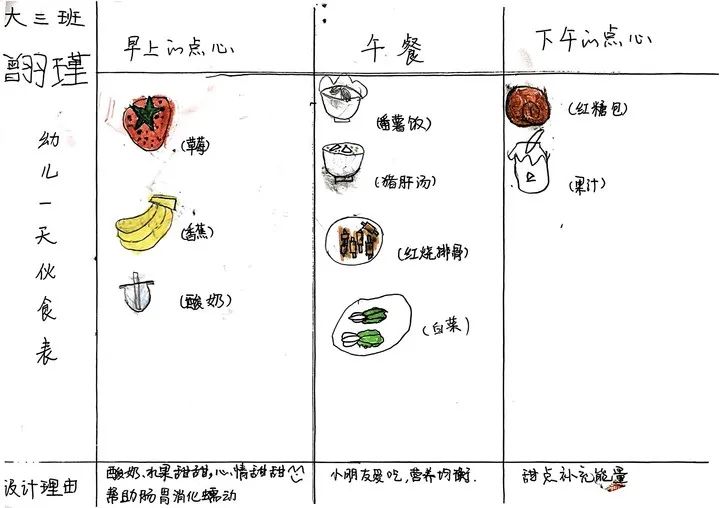 大三班
翾瑾
早上的点心
午餐
下午的点心
幼儿一天伙食表
(草莓)
(香蕉)
(酸奶)
(番薯饭)
(猪肝汤)
(红烧排骨)
(白菜)
(红糖包)
(果汁)
设计理由
酸奶、水果甜甜,心情甜甜
帮助肠胃消化蠕动
小朋友爱吃,营养均衡.
甜点补充能量